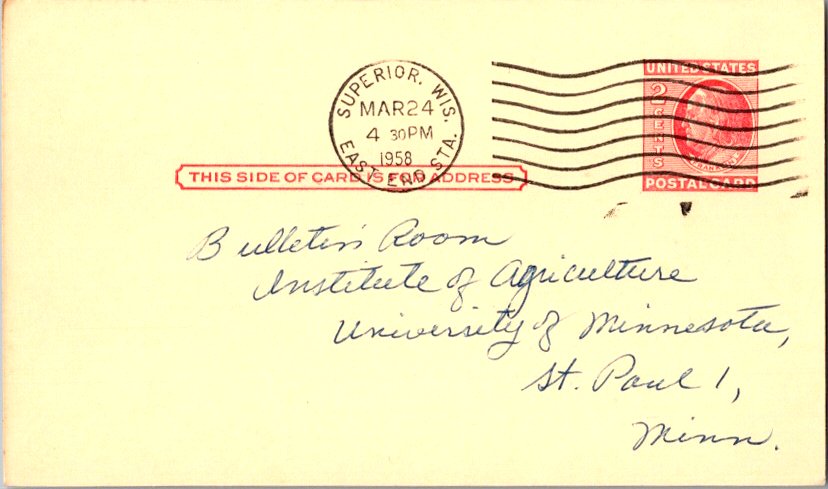 SUPERIOR, WIS.
MAR 24
4 30 PM
1958
EAST END STA.
UNITED STATES
2 CENTS
FRANKLIN
POSTAL CARD
THIS SIDE OF CARD IS FOR ADDRESS
Bulletin Room
Institute of Agriculture
University of Minnesota,
St. Paul 1,
Minn.